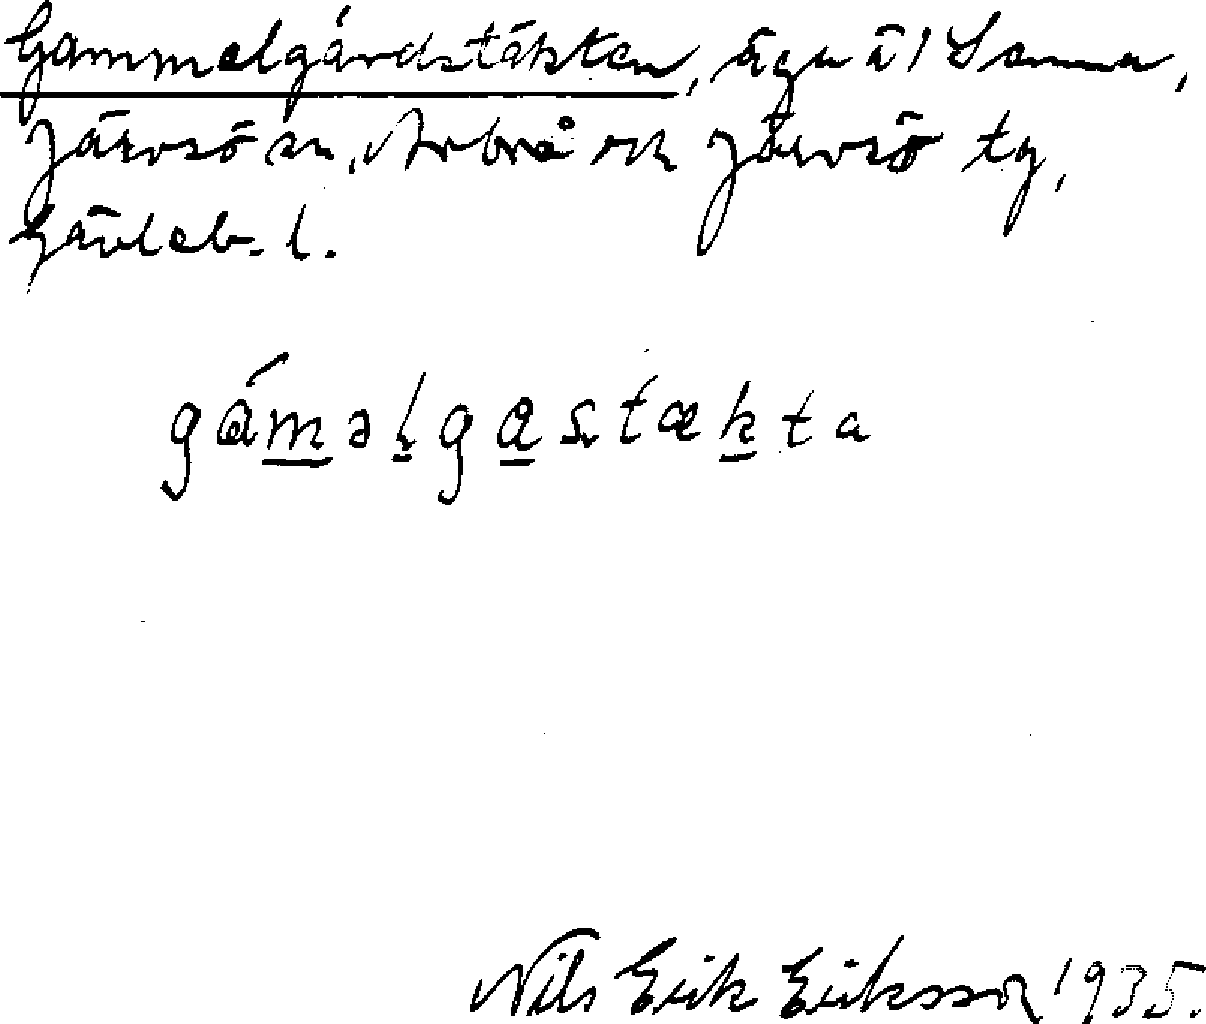 Gammelgårdstäkten, ägn å Sanna,
Järvsö sn, Arbrå och Järvsö tg,
Gävleb. l.
gámǝlgastækta
Nils Erik Eriksson 1935.